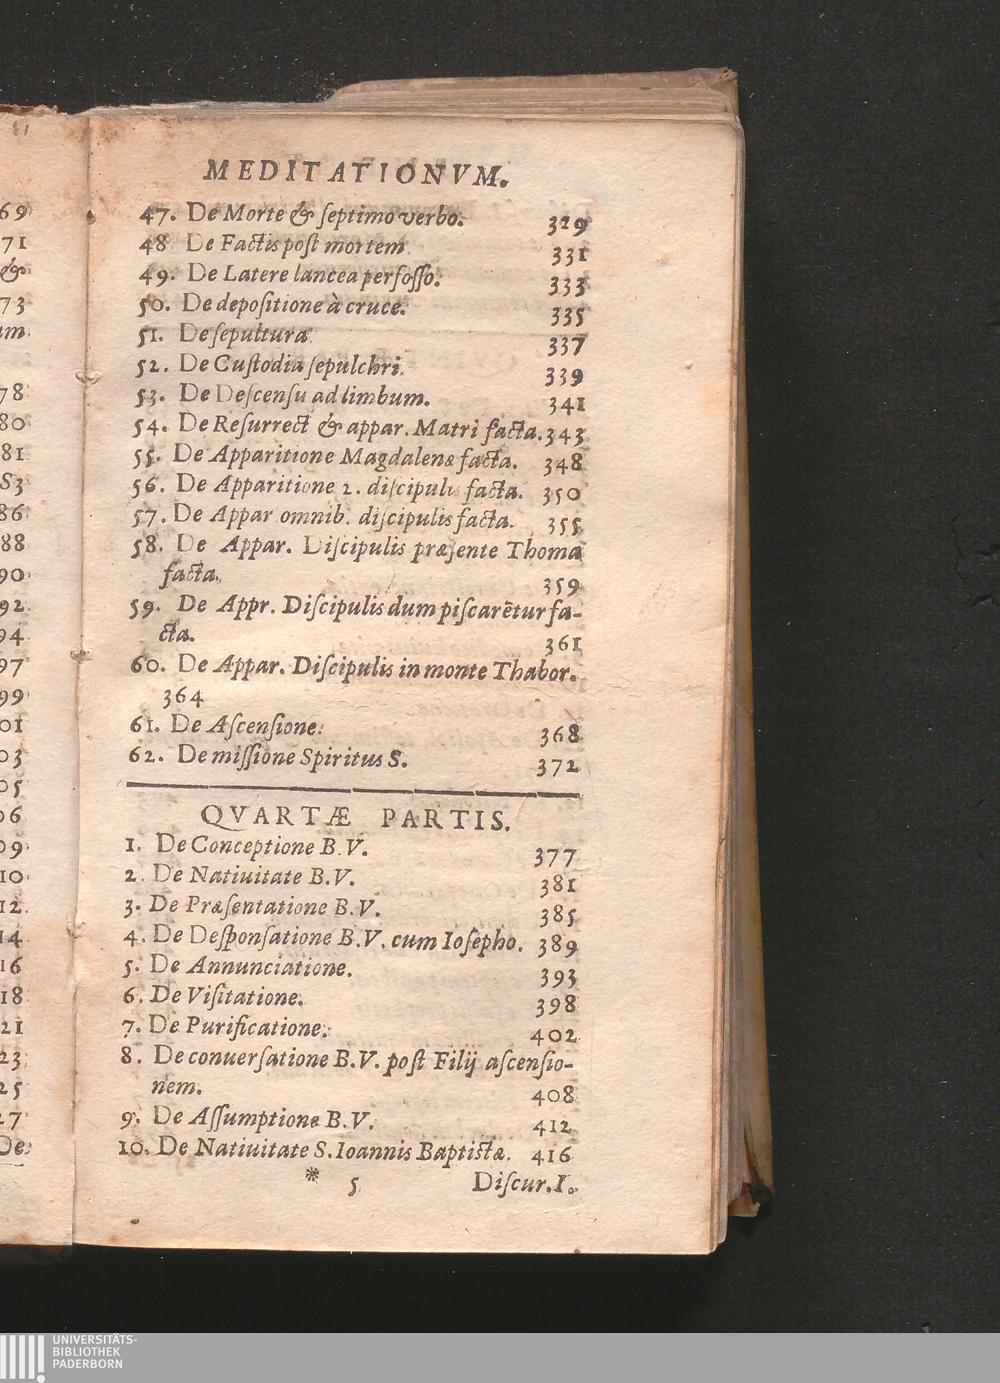 MEDITATIONVM.
47. De Morte & ſeptimo verbo. 329
48 De Factis poſt mortem 331
49. De Latere lancea perfoſſo. 333
50. De depoſitione à cruce. 335
51. De ſepultura 337
52. De Cuſtodia ſepulchri. 339
53. De Deſcenſu ad limbum. 341
54. De Reſurrect & appar. Matri facta. 343
55. De Apparitione Magdalenæ facta. 348
56. De Apparitione 2. diſcipulis facta. 350
57. De Appar omnib. diſcipulis facta. 355
58. De Appar. Diſcipulis præſente Thoma
facta. 359
59. De Appr. Diſcipulis dum piſcarētur fa-
cta. 361
60. De Appar. Diſcipulis in monte Thabor.
364
61. De Aſcenſione. 368
62. De miſſione Spiritus S. 372
QVARTÆ PARTIS.
1. De Conceptione B.V. 377
2. De Natiuitate B.V. 381
3. De Præſentatione B.V. 385
4. De Deſponſatione B.V. cum Ioſepho. 389
5. De Annunciatione. 393
6. De Viſitatione. 398
7. De Purificatione. 402
8. De conuerſatione B.V. poſt Filij aſcenſio-
nem. 408
9. De Aſſumptione B.V. 412
10. De Natiuitate S. Ioannis Baptiſtæ. 416
* 5 Diſcur. I.
69
71
&
73
um
78
80
81
S3
86
88
90
92
94
97
99
01
03
05
06
09
10
12
14
16
18
21
23
25
27
De
UNIVERSITÄTS-
BIBLIOTHEK
PADERBORN